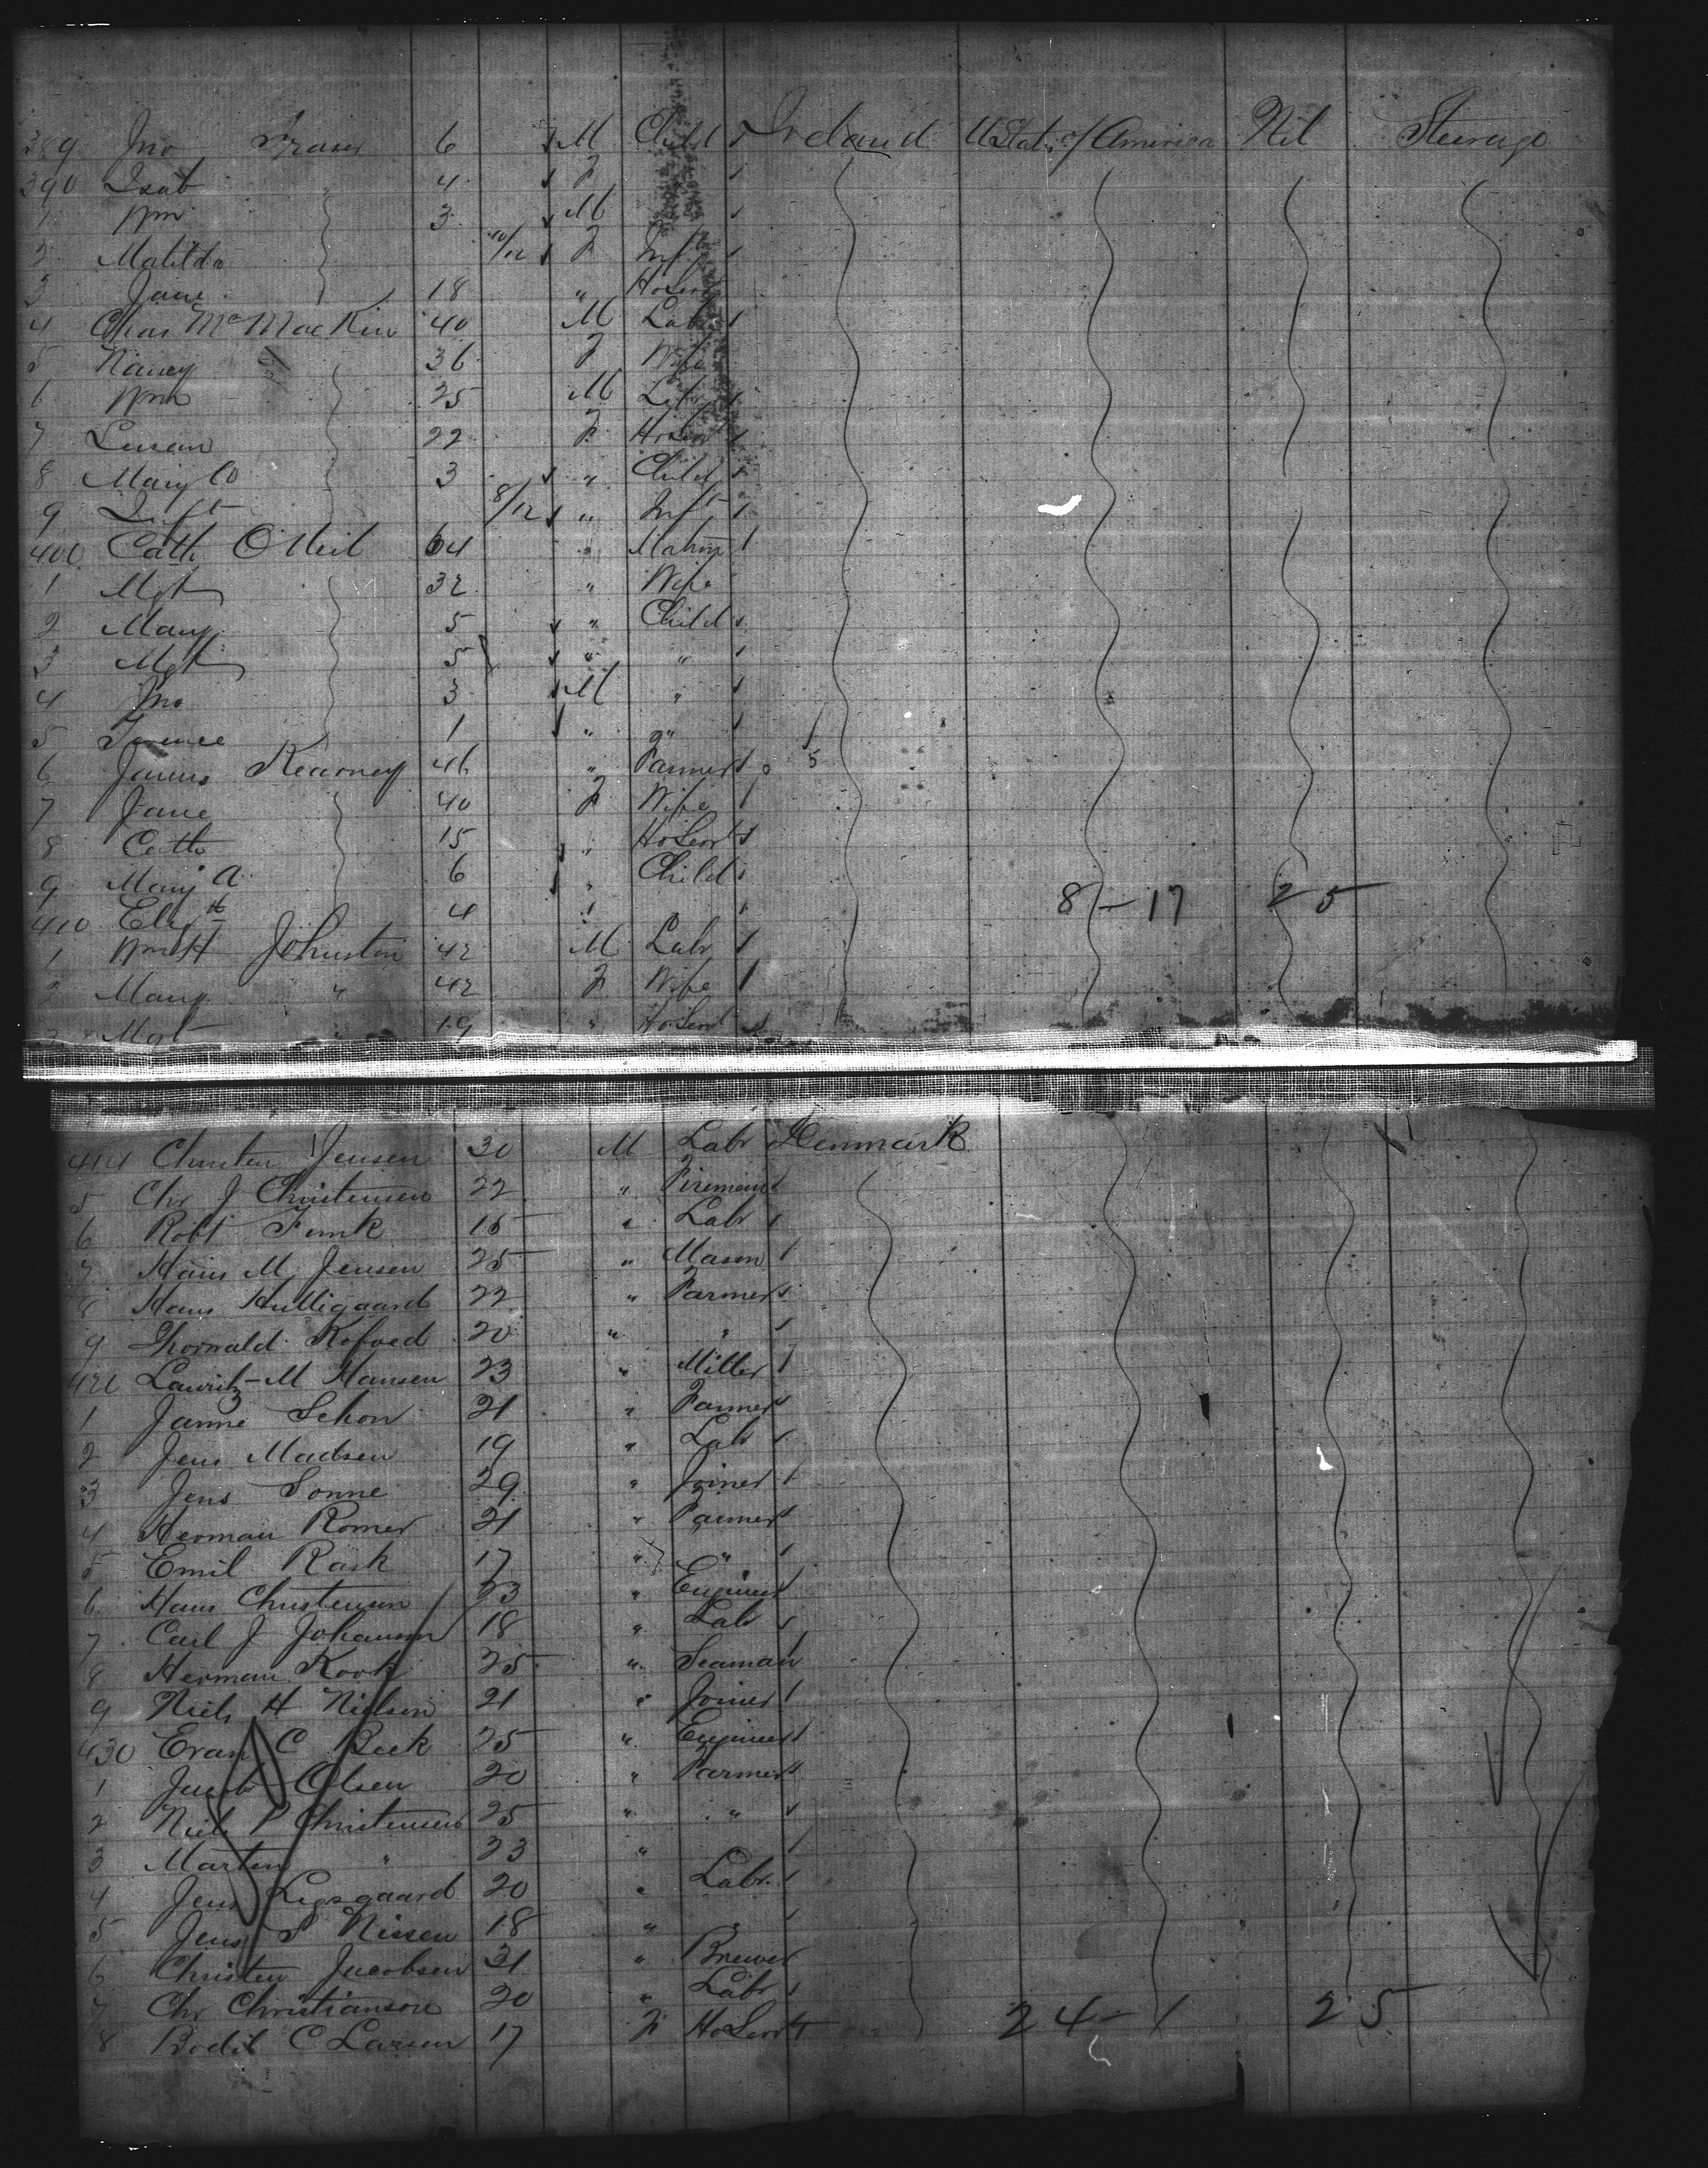 389 Jno Fraser 6 M Child Ireland U States of America Nil Steerage
390 Isab " 4 F
1 Wm 3 M
2 Matilda 10/12 F Inft
3 Jane 18 " HoServt
4 Chas Mc MacKin 40 M Labr
5 Nancy 36 F Wife
6 Wm 25 M Labr
7 Susan 22 F HoServt
8 Mary 3 " Child
9 Inft 8/12 " Inft
400 Cath O'Neil 64 " Matron
1 Mgt 32 " Wife
2 Mary 5 " Child
3 Mgt 5 " "
4 Jno 3 M "
5 Terence 1 " "
6 James Kearney 46 " Farmer 5
7 Jane 40 F Wife
8 Cath 15 " HoServt
9 Mary A 6 " Child
410 Elizth 4 " " 8 - 17 25
1 Wm H Johnston 42 M Labr
2 Mary " 42 F Wife
3 Mgt " 19 " HoServt
414 Christen Jensen 30 M Labr Denmark
5 Chr J Christensen 22 " Fireman
6 Robt Funk 16 " Labr
7 Hans M Jensen 25 " Mason
8 Hans Hulligaard 22 " Farmer
9 Thorwald Kofoed 20 " "
420 Lauritz M Hansen 23 " Miller
1 Janne Schon 21 " Farmer
2 Jens Madsen 19 " Labr
3 Jens Sonne 29 " Joiner
4 Herman Romer 21 " Farmer
5 Emil Rask 17 " "
6 Hans Christensen 23 " Engineer
7 Carl J Johanson 18 " Labr
8 Herman Kook 25 " Seaman
9 Niels H Nielsen 21 " Joiner
430 Evan C Beck 25 " Engineer
1 Jacob Olsen 20 " Farmer
2 Niels P Christensen 25 " "
3 Marten " 23 "
4 Jens Ligsgaard 20 " Labr
5 Jens S Nissen 18 " "
6 Christen Jacobsen 31 " Brewer
7 Chr Christianson 20 " Labr
8 Bodil C Larsen 17 F HoServt 24 - 1 25